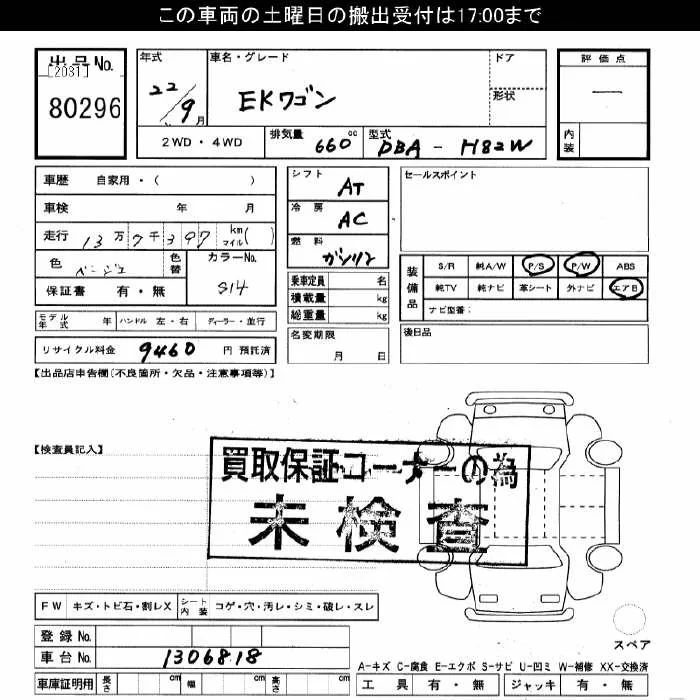 この車両の土曜日の搬出受付は17:00まで
出品No. [2031] 80296
年式 22/9月
車名・グレード EKワゴン
ドア
形状
評価点 —
内装
2WD・4WD
排気量 660cc
型式 DBA-H82W
車歴 自家用・( )
車検 年 月
走行 13万7千397 km マイル( )
色 ベージュ 色替
カラーNo. S14
保証書 有・無
シフト AT
冷房 AC
燃料 ガソリン
乗車定員 名
積載量 kg
総重量 kg
セールスポイント
装備品
S/R 純A/W P/S P/W ABS
純TV 純ナビ 革シート 外ナビ エアB
ナビ型番:
モデル年式 年 ハンドル 左・右 ディーラー・並行
名変期限 月 日
後日品
リサイクル料金 9460 円 預託済
【出品店申告欄(不良箇所・欠品・注意事項等)】
【検査員記入】
買取保証コーナーの為
未検査
FW キズ・トビ石・割レX シート内装 コゲ・穴・汚レ・シミ・破レ・スレ
スペア
登録No.
車台No. 1306818
車庫証明用 長さ cm 幅 cm 高さ cm
A-キズ C-腐食 E-エクボ S-サビ U-凹ミ W-補修 XX-交換済
工具 有・無 ジャッキ 有・無